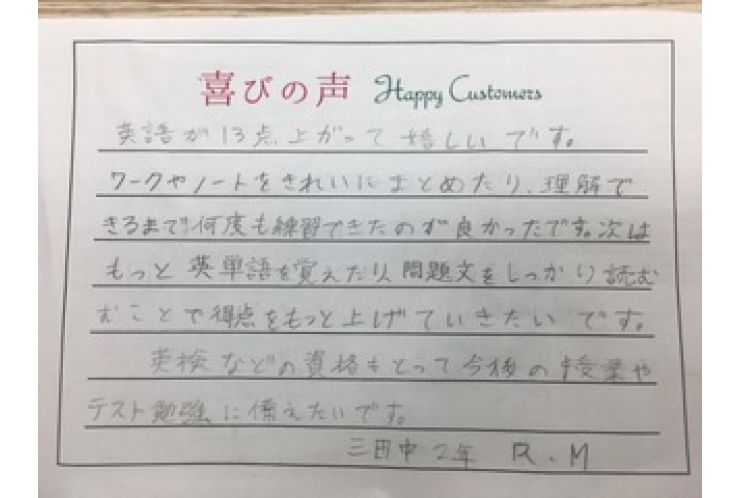 喜びの声 Happy Customers
英語が13点上がって嬉しいです。
ワークやノートをきれいにまとめたり、理解で
きるまで何度も練習できたのが良かったです。次は
もっと英単語を覚えたり、問題文をしっかり読む
むことで得点をもっと上げていきたいです。
英検などの資格もとって今後の授業や
テスト勉強に備えたいです。
三田中2年 R.M